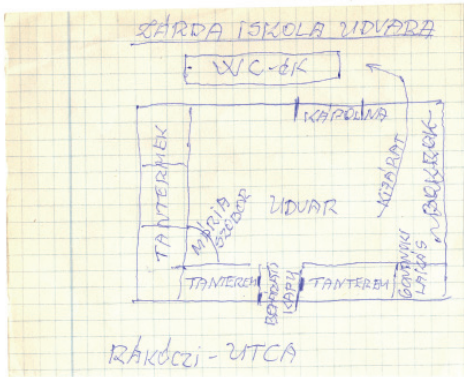 ZÁRDA ISKOLA UDVARA
WC-ÉK
KÁPOLNA
TANTERMEK
MÁRIA
SZOBOR
UDVAR
KIJÁRAT
BOKROK
TANTEREM
BEJÁRATI
KAPU
TANTEREM
GONDNOKI
LAKÁS
RÁKÓCZI - UTCA